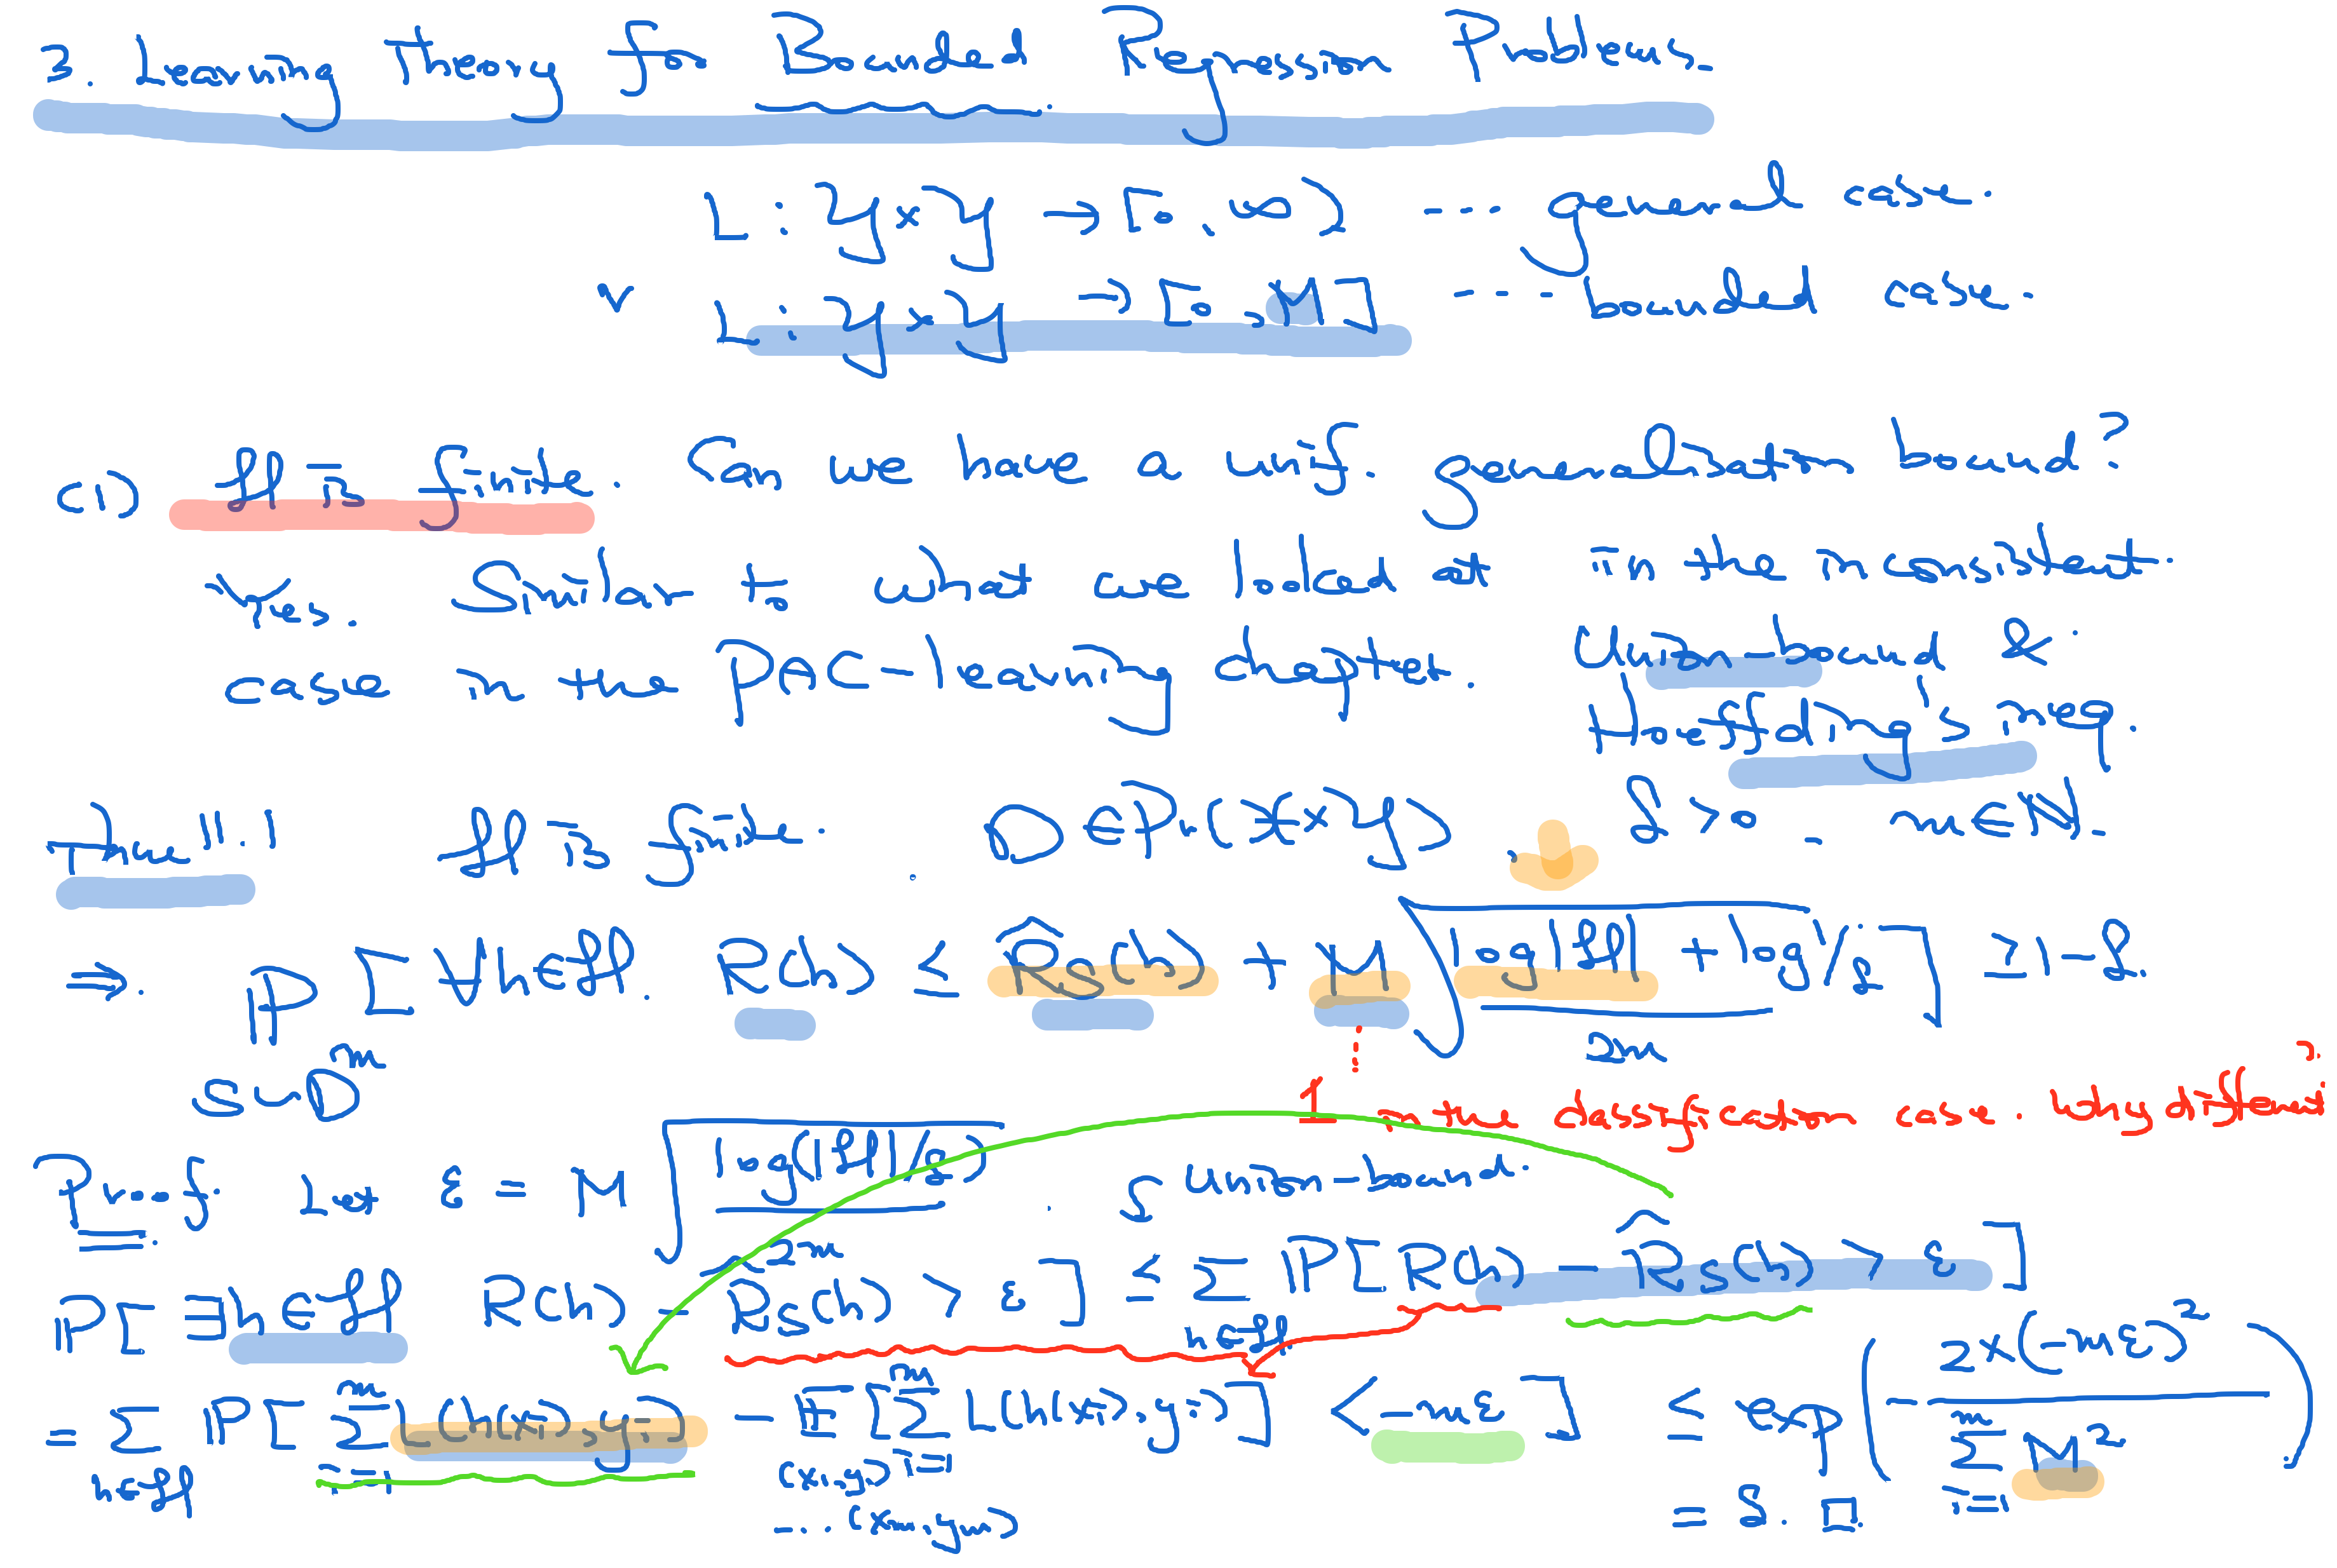 3. Learning Theory for Bounded Regression Problems
L : 𝒴 × 𝒴 → [0, ∞) ---- general case.
✓ L : 𝒴 × 𝒴 → [0, M] ---- bounded case.
(1) ℋ is finite. Can we have a unif. generalisation bound?
Yes. Similar to what we looked at in the inconsistent
case in the PAC-learning chapter. Union-bound &
Hoeffding's ineq.
Thm 11.1 ℋ is finite. D ∈ Pr(𝒳×𝒴), δ > 0, m ∈ ℕ.
⇒. P_{S∼D^m} [ ∀h∈ℋ. R(h) ≤ R̂_S(h) + M √( (log|ℋ| + log 1/δ) / 2m ) ] ≥ 1-δ.
1 in the classification case. Why different?
Proof Let ε = M √( log(|ℋ|/δ) / 2m ). ∫ Union-bound.
P[ ∃h∈ℋ R(h) - R̂_S(h) > ε ] ≤ Σ_{h∈ℋ} P[ R(h) - R̂_S(h) > ε ]
= Σ_{h∈ℋ} P[ Σ_{i=1}^m L(h(x_i), y_i) - E_{(x_1,y_1) ... (x_m,y_m)} [ Σ_{i=1}^m L(h(x_i), y_i) ] < -mε ] ≤ exp( - 2×(-mε)^2 / Σ_{i=1}^m M^2 )
= δ. □.